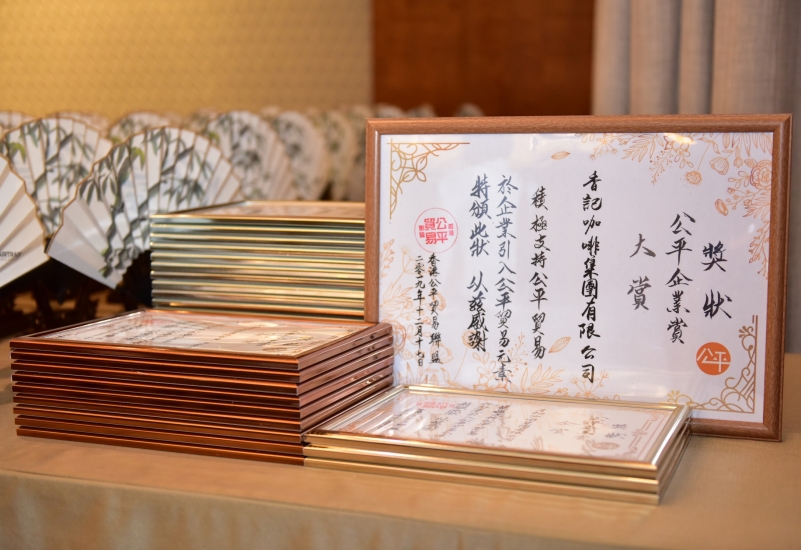 獎狀
公平企業賞
大賞
公平
香記咖啡集團有限公司
積極支持公平貿易
於企業引入公平貿易元素
特頒此狀 以茲感謝
公平
貿易
香港公平貿易聯盟
二零一九年十二月十七日